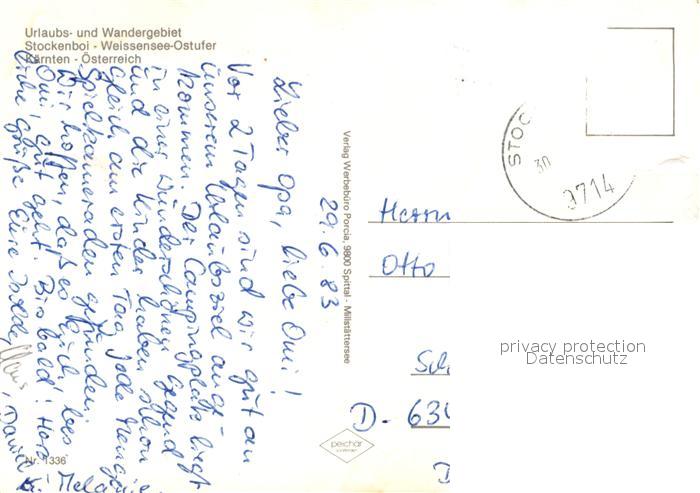 Urlaubs- und Wandergebiet
Stockenboi - Weissensee-Ostufer
Kärnten - Österreich
29.6.83
Lieber Opa, liebe Omi!
Vor 2 Tagen sind wir gut an
unserem Urlaubsziel ange-
kommen. Der Campingplatz liegt
in einer wunderschönen Gegend
und die Kinder haben schon
gleich am ersten Tag jede Menge
Spielkameraden gefunden.
Wir hoffen, daß es Euch bes
Omi! gut geht. Bis bald!
Liebe Grüße Eure
, David
Nr. 1336
Verlag Werbebüro Porcia, 9800 Spittal - Millstättersee
peichär
STOC
30
9714
Herrn
Otto
Sch
D- 635
D
privacy protection
Datenschutz